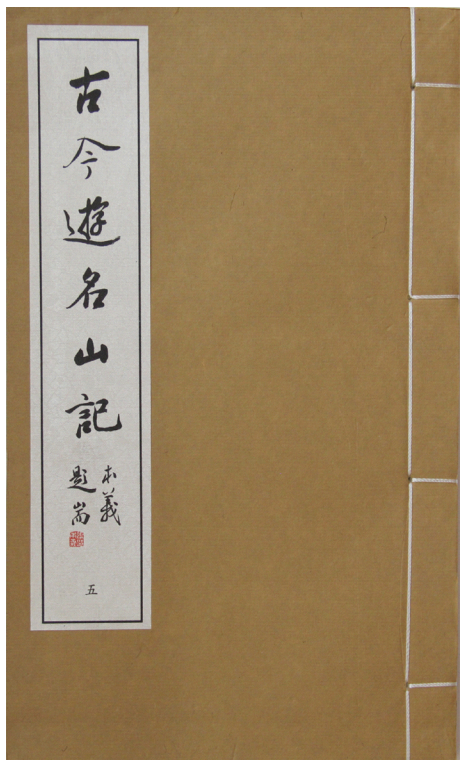 古今遊名山記
本義
題耑
五